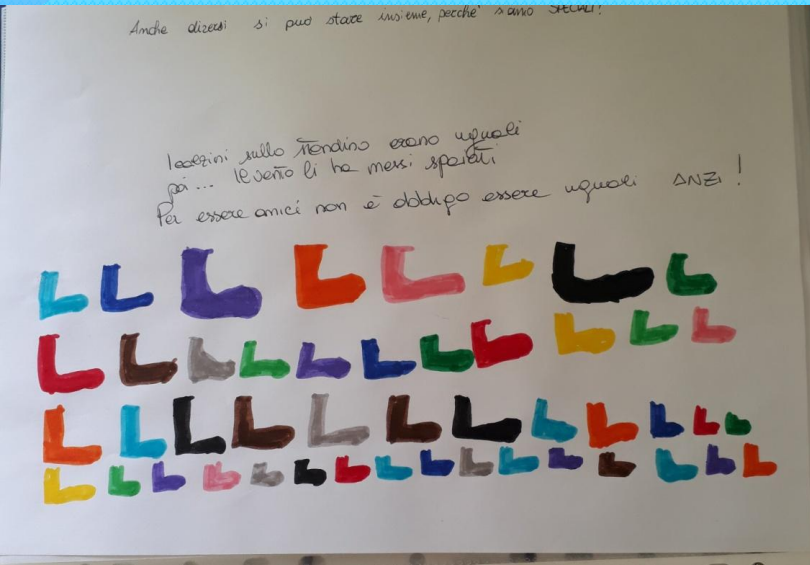 Anche diversi si può stare insieme, perché siamo SPECIALI!
I calzini sullo stendino erano uguali
poi... il vento li ha messi spaiati
Per essere amici non è obbligo essere uguali ANZI!